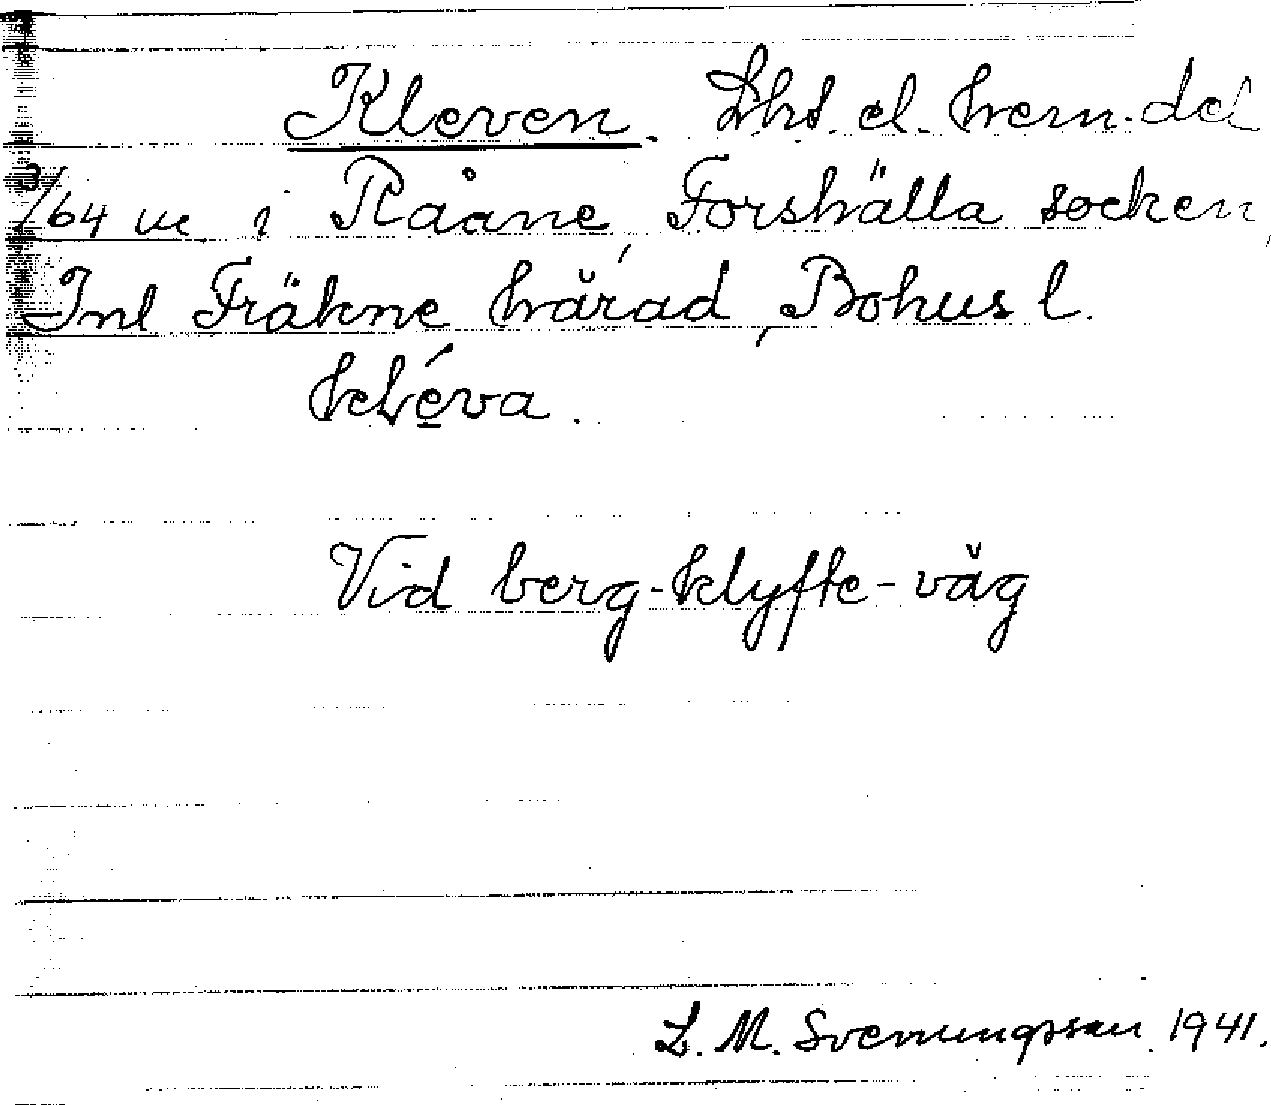 Kleven. Lht. el. hem. del
3/64 m i Råane, Forshälla socken,
Inl Fräkne härad, Bohus l.
kléva.
Vid berg-klyfte-väg
L. M. Svenungsson 1941.